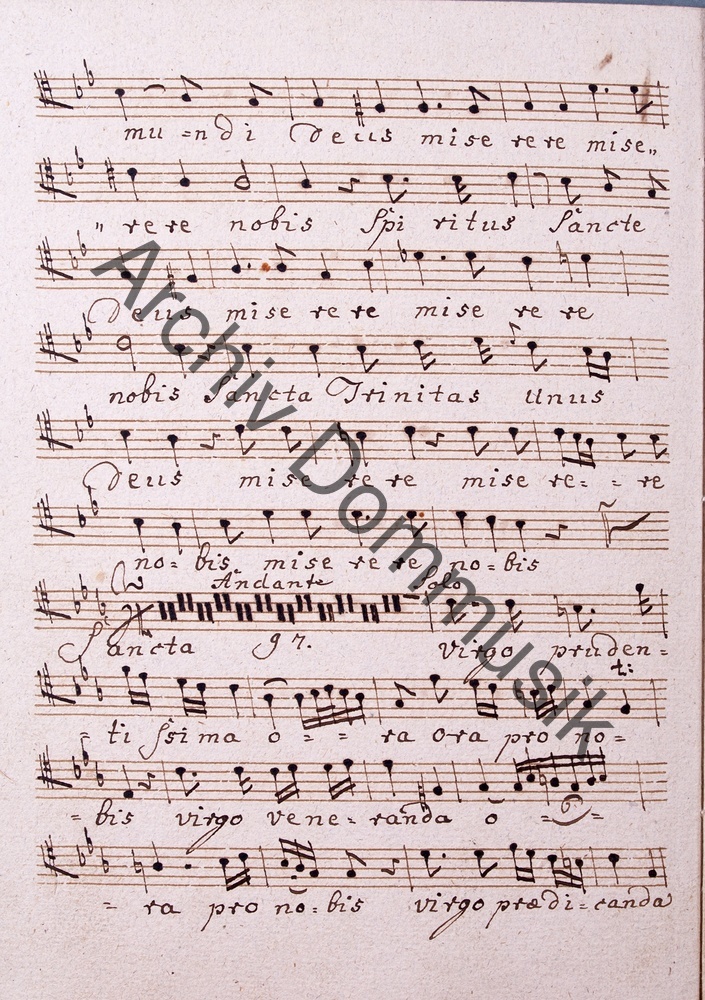 mu =ndi Deus mise rere mise„
„ rere nobis Spi ritus Sancte
Deus mise rere mise re re
nobis Sancta Trinitas Unus
Deus mise re re mise re= = re
no= bis mise re re no=bis
Andante Solo
Sancta 97. virgo pruden=
t:
= ti ssima o = = ra ora pro no=
= bis virgo vene= randa o = =
= ra pro no=bis virgo prædi=canda
Archiv Dommusik